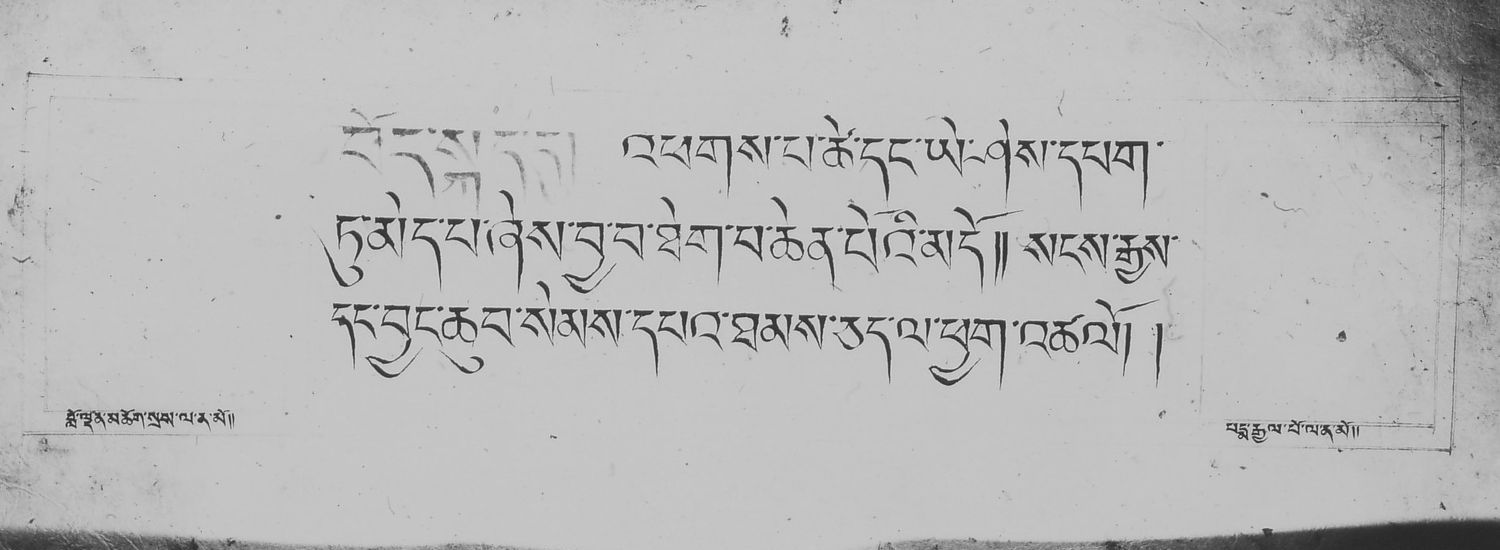 བོད་སྐད་དུ། འཕགས་པ་ཚེ་དང་ཡེ་ཤེས་དཔག་
ཏུ་མེད་པ་ཞེས་བྱ་བ་ཐེག་པ་ཆེན་པོའི་མདོ༎ སངས་རྒྱས་
དང་བྱང་ཆུབ་སེམས་དཔའ་ཐམས་ཅད་ལ་ཕྱག་འཚལོ །
བློ་ལྡན་མཆོག་སྲས་ལ་ན་མོ༎
པདྨ་རྒྱལ་པོ་ལ་ན་མོ༎